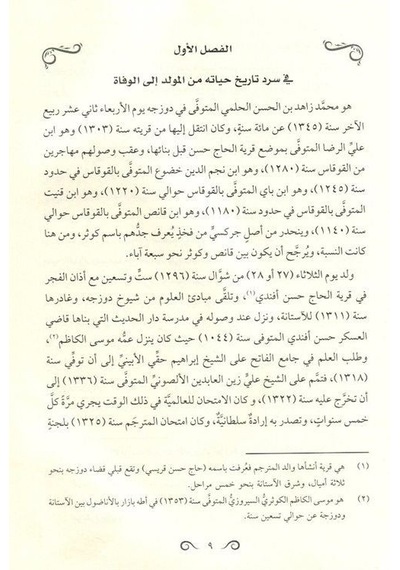 الفصل الأول
في سرد تاريخ حياته من المولد إلى الوفاة
هو محمَّد زاهد بن الحسن الحلمي المتوفَّى في دوزجه يوم الأربعاء ثاني عشر ربيع
الآخر سنة (١٣٤٥) عن مائة سنةٍ، وكان انتقل إليها من قريته سنة (١٣٠٣) وهو ابن
عليِّ الرضا المتوفَّى بموضع قرية الحاج حسن قبل بنائها، وعقب وصولهم مهاجرين
من القوقاس سنة (١٢٨٠)، وهو ابن نجم الدين خضوع المتوفَّى بالقوقاس في حدود
سنة (١٢٤٥)، وهو ابن باي المتوفَّى بالقوقاس حوالي سنة (١٢٢٠)، وهو ابن قنيت
المتوفَّى بالقوقاس في حدود سنة (١١٨٠)، وهو ابن قانص المتوفَّى بالقوقاس حوالي
سنة (١١٤٠)، وينحدر من أصلٍ جركسيٍّ من فخذٍ يُعرف جدُّهم باسم كوثر، ومن هنا
كانت النسبة، ويُرجَّح أن يكون بين قانص وكوثر نحو سبعة آباء.
ولد يوم الثلاثاء (٢٧ أو ٢٨) من شوَّال سنة (١٢٩٦) ستٍّ وتسعين مع أذان الفجر
في قرية الحاج حسن أفندي(١)، وتلقَّى مبادئ العلوم من شيوخ دوزجه، وغادرها
سنة (١٣١١) للآستانة، ونزل عند وصوله في مدرسة دار الحديث التي بناها قاضي
العسكر حسن أفندي المتوفى سنة (١٠٤٤) حيث كان ينزل عمُّه موسى الكاظم(٢)،
وطلب العلم في جامع الفاتح على الشيخ إبراهيم حقِّي الأيينيِّ إلى أن توفِّي سنة
(١٣١٨)، فتمَّم على الشيخ عليّ زين العابدين الألصونيِّ المتوفَّى سنة (١٣٣٦) إلى
أن تخرَّج عليه سنة (١٣٢٢)، و كان الامتحان للعالميَّة في ذلك الوقت يجري مرَّةً كلَّ
خمس سنواتٍ، وتصدر به إرادةٌ سلطانيَّةٌ، وكان امتحان المترجَم سنة (١٣٢٥) بلجنةٍ
(١) هي قرية أنشأها والد المترجم فعُرفت باسمه (حاج حسن قريسي) وتقع قبلي قضاء دوزجه بنحو
ثلاثة أميال، وشرق الآستانة بنحو خمس مراحل.
(٢) هو موسى الكاظم الكوثريُّ السيروزيُّ المتوفَّى سنة (١٣٥٣) في أطه بازار بالأناضول بين الآستانة
ودوزجة عن حوالي تسعين سنة.
٩